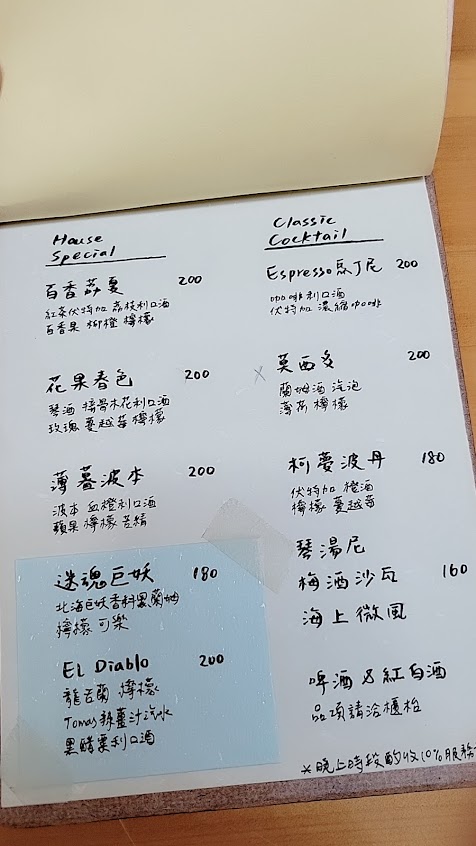 House
Special
百香荔夏 200
紅茶伏特加 荔枝利口酒
百香果 柳橙 檸檬
花果春色 200
琴酒 接骨木花利口酒
玫瑰 蔓越莓 檸檬
薄薑波本 200
波本 血橙利口酒
蘋果 檸檬 苦精
迷魂巨妖 180
北海巨妖香料黑蘭姆
檸檬 可樂
El Diablo 200
龍舌蘭 檸檬
Tomas辣薑汁汽水
黑醋栗利口酒
Classic
Cocktail
Espresso馬丁尼 200
咖啡利口酒
伏特加 濃縮咖啡
×莫西多 200
蘭姆酒 汽泡
薄荷 檸檬
柯夢波丹 180
伏特加 橙酒
檸檬 蔓越莓
琴湯尼
梅酒沙瓦 160
海上微風
啤酒&紅白酒
品項請洽櫃枱
*晚上時段酌收10%服務